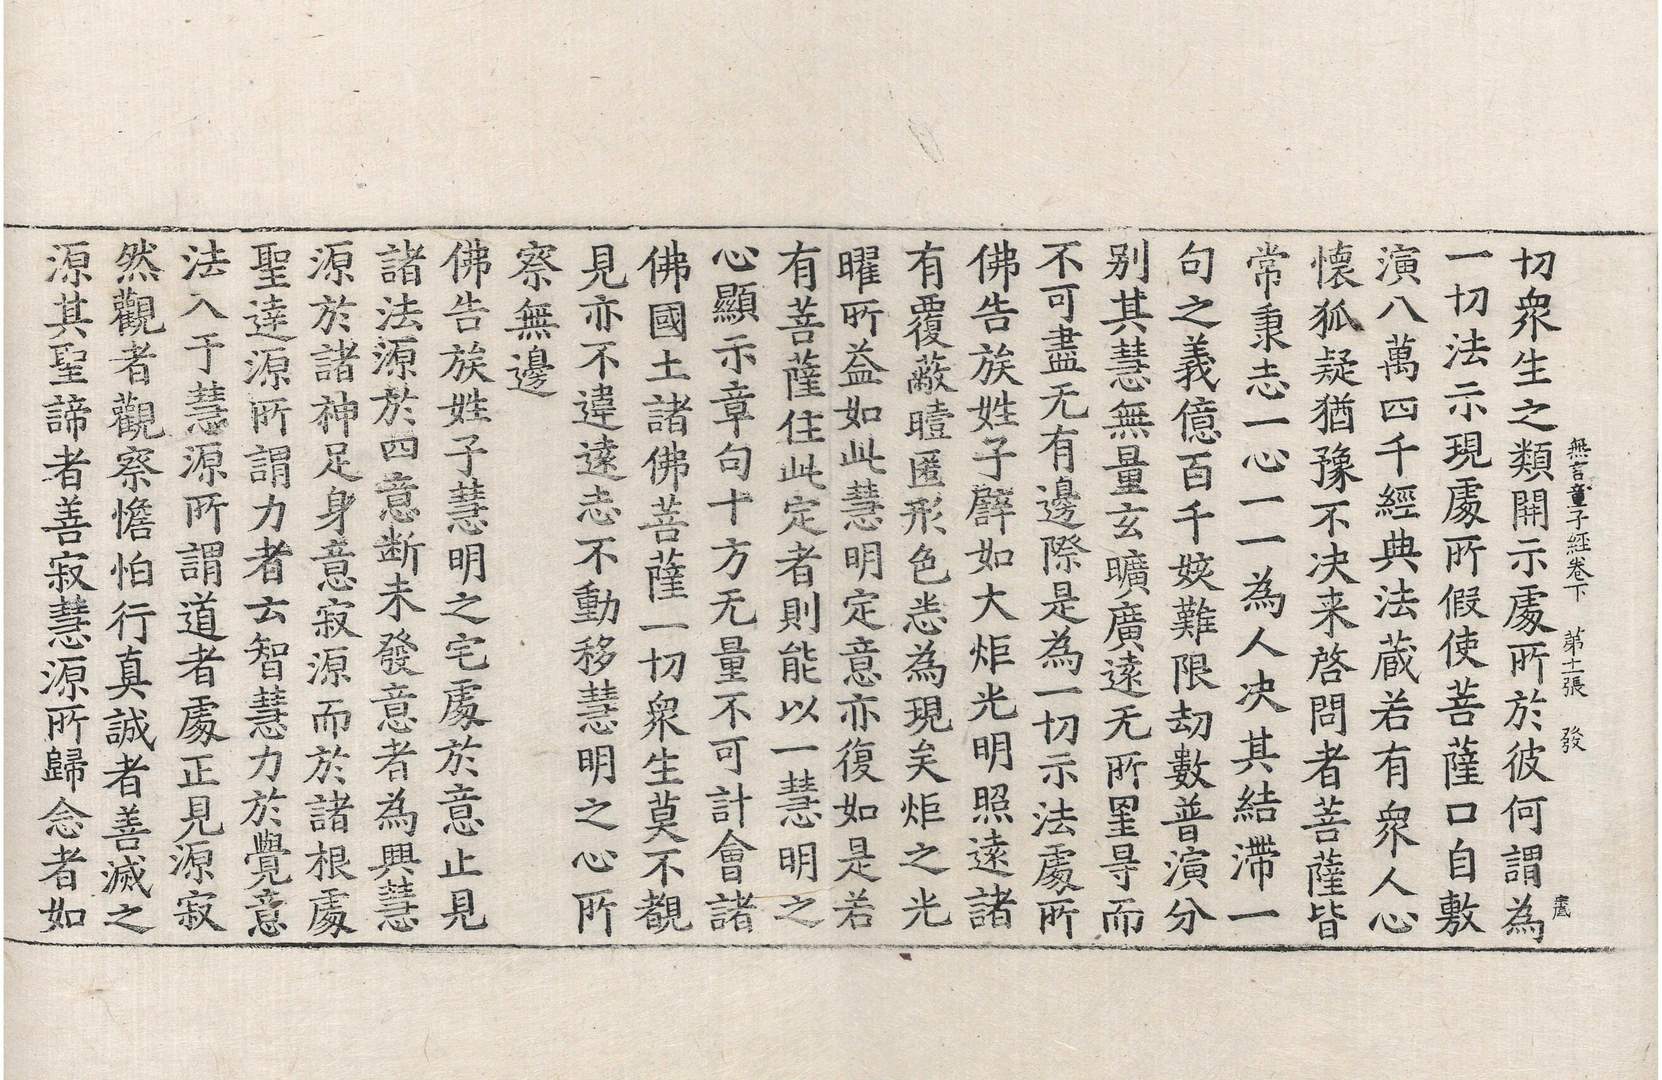 無言童子經卷下 第十二張 發
切衆生之類開示處所於彼何謂為
一切法示現處所假使菩薩口自敷
演八萬四千經典法藏若有衆人心
懷狐疑猶豫不决来啓問者菩薩皆
常秉志一心一一為人决其結滯一
句之義億百千姟難限劫數普演分
别其慧無量玄曠廣遠无所罣㝵而
不可盡无有邊際是為一切示法處所
佛告族姓子譬如大炬光明照遠諸
有覆蔽曀匿形色悉為現矣炬之光
曜所益如此慧明定意亦復如是若
有菩薩住此定者則能以一慧明之
心顯示章句十方无量不可計會諸
佛國土諸佛菩薩一切衆生莫不覩
見亦不違遠志不動移慧明之心所
察無邊
佛告族姓子慧明之宅處於意止見
諸法源於四意断未發意者為興慧
源於諸神足身意寂源而於諸根處
聖達源所謂力者云智慧力於覺意
法入于慧源所謂道者處正見源寂
然觀者觀察憺怕行真誠者善滅之
源其聖諦者善寂慧源所歸念者如